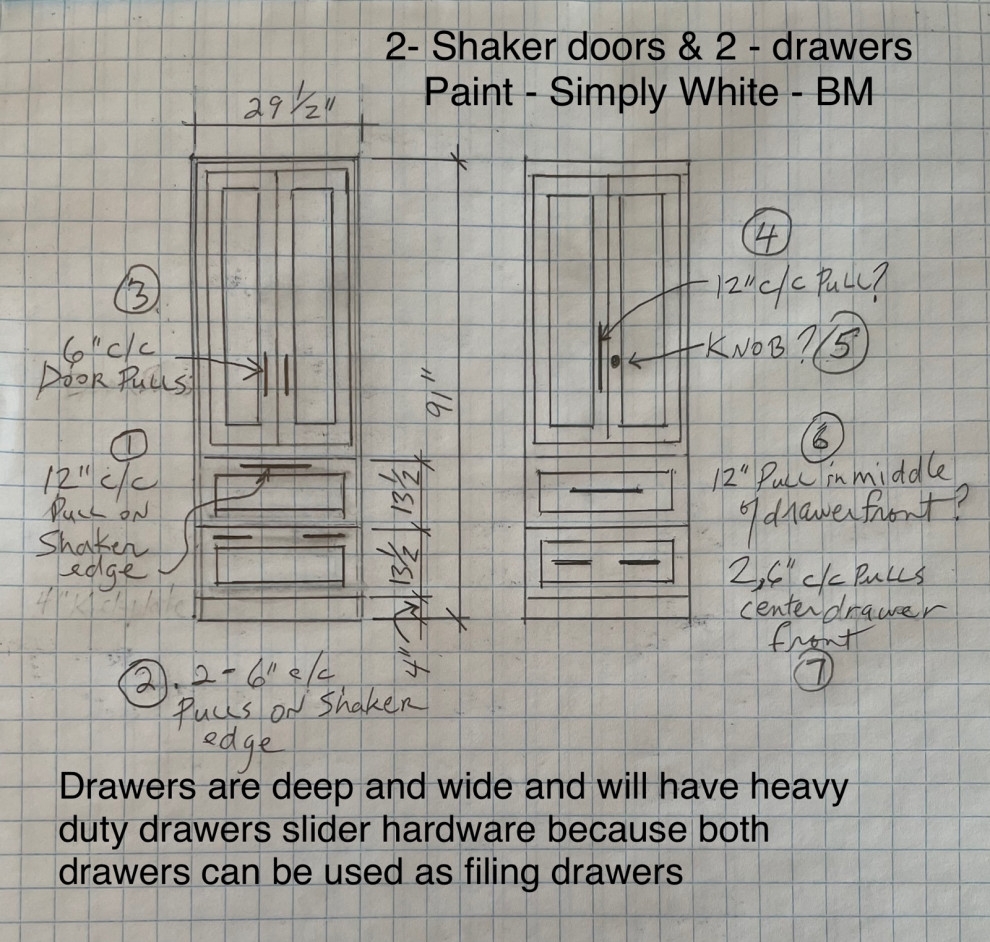 2- Shaker doors & 2 - drawers
Paint - Simply White - BM
29 1/2"
3
6" c/c
Door Pulls
1
12" c/c
Pull on
Shaker
edge
4" Kickplate
2. 2- 6" c/c
Pulls on Shaker
edge
91"
13 1/2
13 1/2
4"
4
12" c/c Pull?
KNOB? 5
6
12" Pull in middle
of drawer front?
2, 6" c/c Pulls
center drawer
front
7
Drawers are deep and wide and will have heavy
duty drawers slider hardware because both
drawers can be used as filing drawers